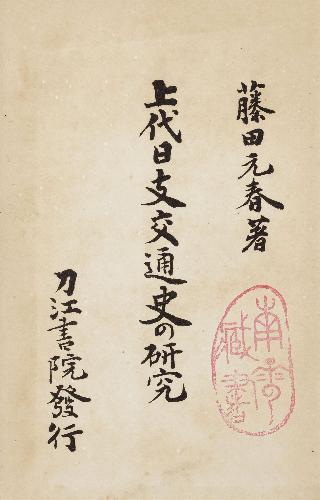 藤田元春著
上代日支交通史の研究
刀江書院發行